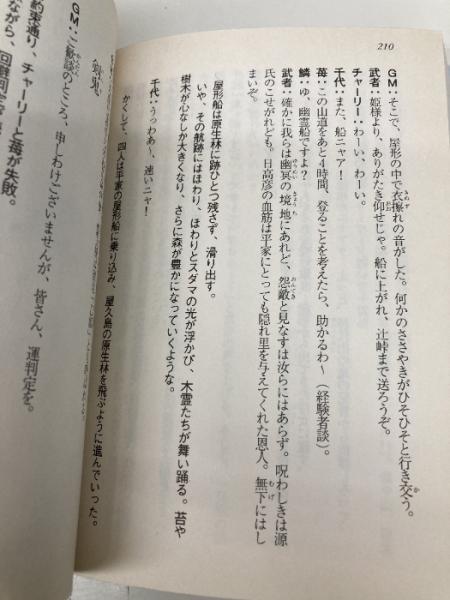 210
GM:そこで、屋形の中で衣擦れの音がした。何かのささやきがひそひそと行き交う。
武者:姫様より、ありがたき仰せじゃ。船に上がれ、辻峠まで送ろうぞ。
チャーリー:わーい、わーい。
千代:また、船ニャア!
苺:この山道をあと4時間、登ることを考えたら、助かるわ~(経験者談)。
鱗:ゆ、幽霊船ですよ?
武者:確かに我らは幽冥の境地にあれど、怨敵と見なすは汝らにはあらず。呪わしきは源
氏のこせがれども。日高彦の血筋は平家にとっても隠れ里を与えてくれた恩人。無下にはし
まいぞ。
屋形船は原生林に跡ひとつ残さず、滑り出す。
いや、その航跡にはほわり、ほわりとスダマの光が浮かび、木霊たちが舞い踊る。苔や
樹木が心なしか大きくなり、さらに森が豊かになっていくような。
千代:うっわあ~、速いニャ!
かくして、四人は平家の屋形船に乗り込み、屋久島の原生林を飛ぶように進んでいった。
GM:ご歓談のところ、申しわけございませんが、皆さん、運判定を。
約束通り、チャーリーと苺が失敗。